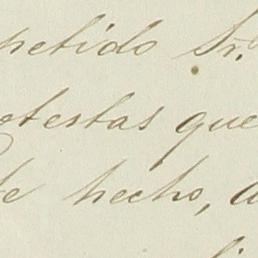 petido Sr.
otestas que
de hecho,